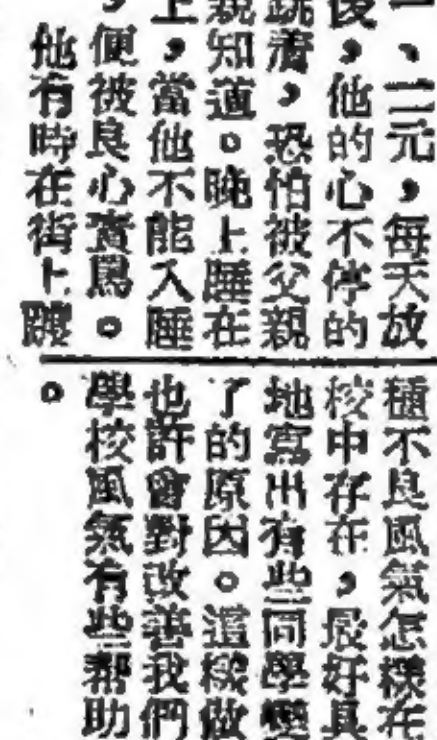 一、二元，每天放
後，他的心不停的
跳着，恐怕被父親
親知道。晚上睡在
上，當他不能入睡
，便被良心責罵。
他有時在街上踱
種不良風氣怎樣在
校中存在，最好具
地寫出有些同學變
了的原因。這樣做
也許會對改善我們
學校風氣有些帮助
。